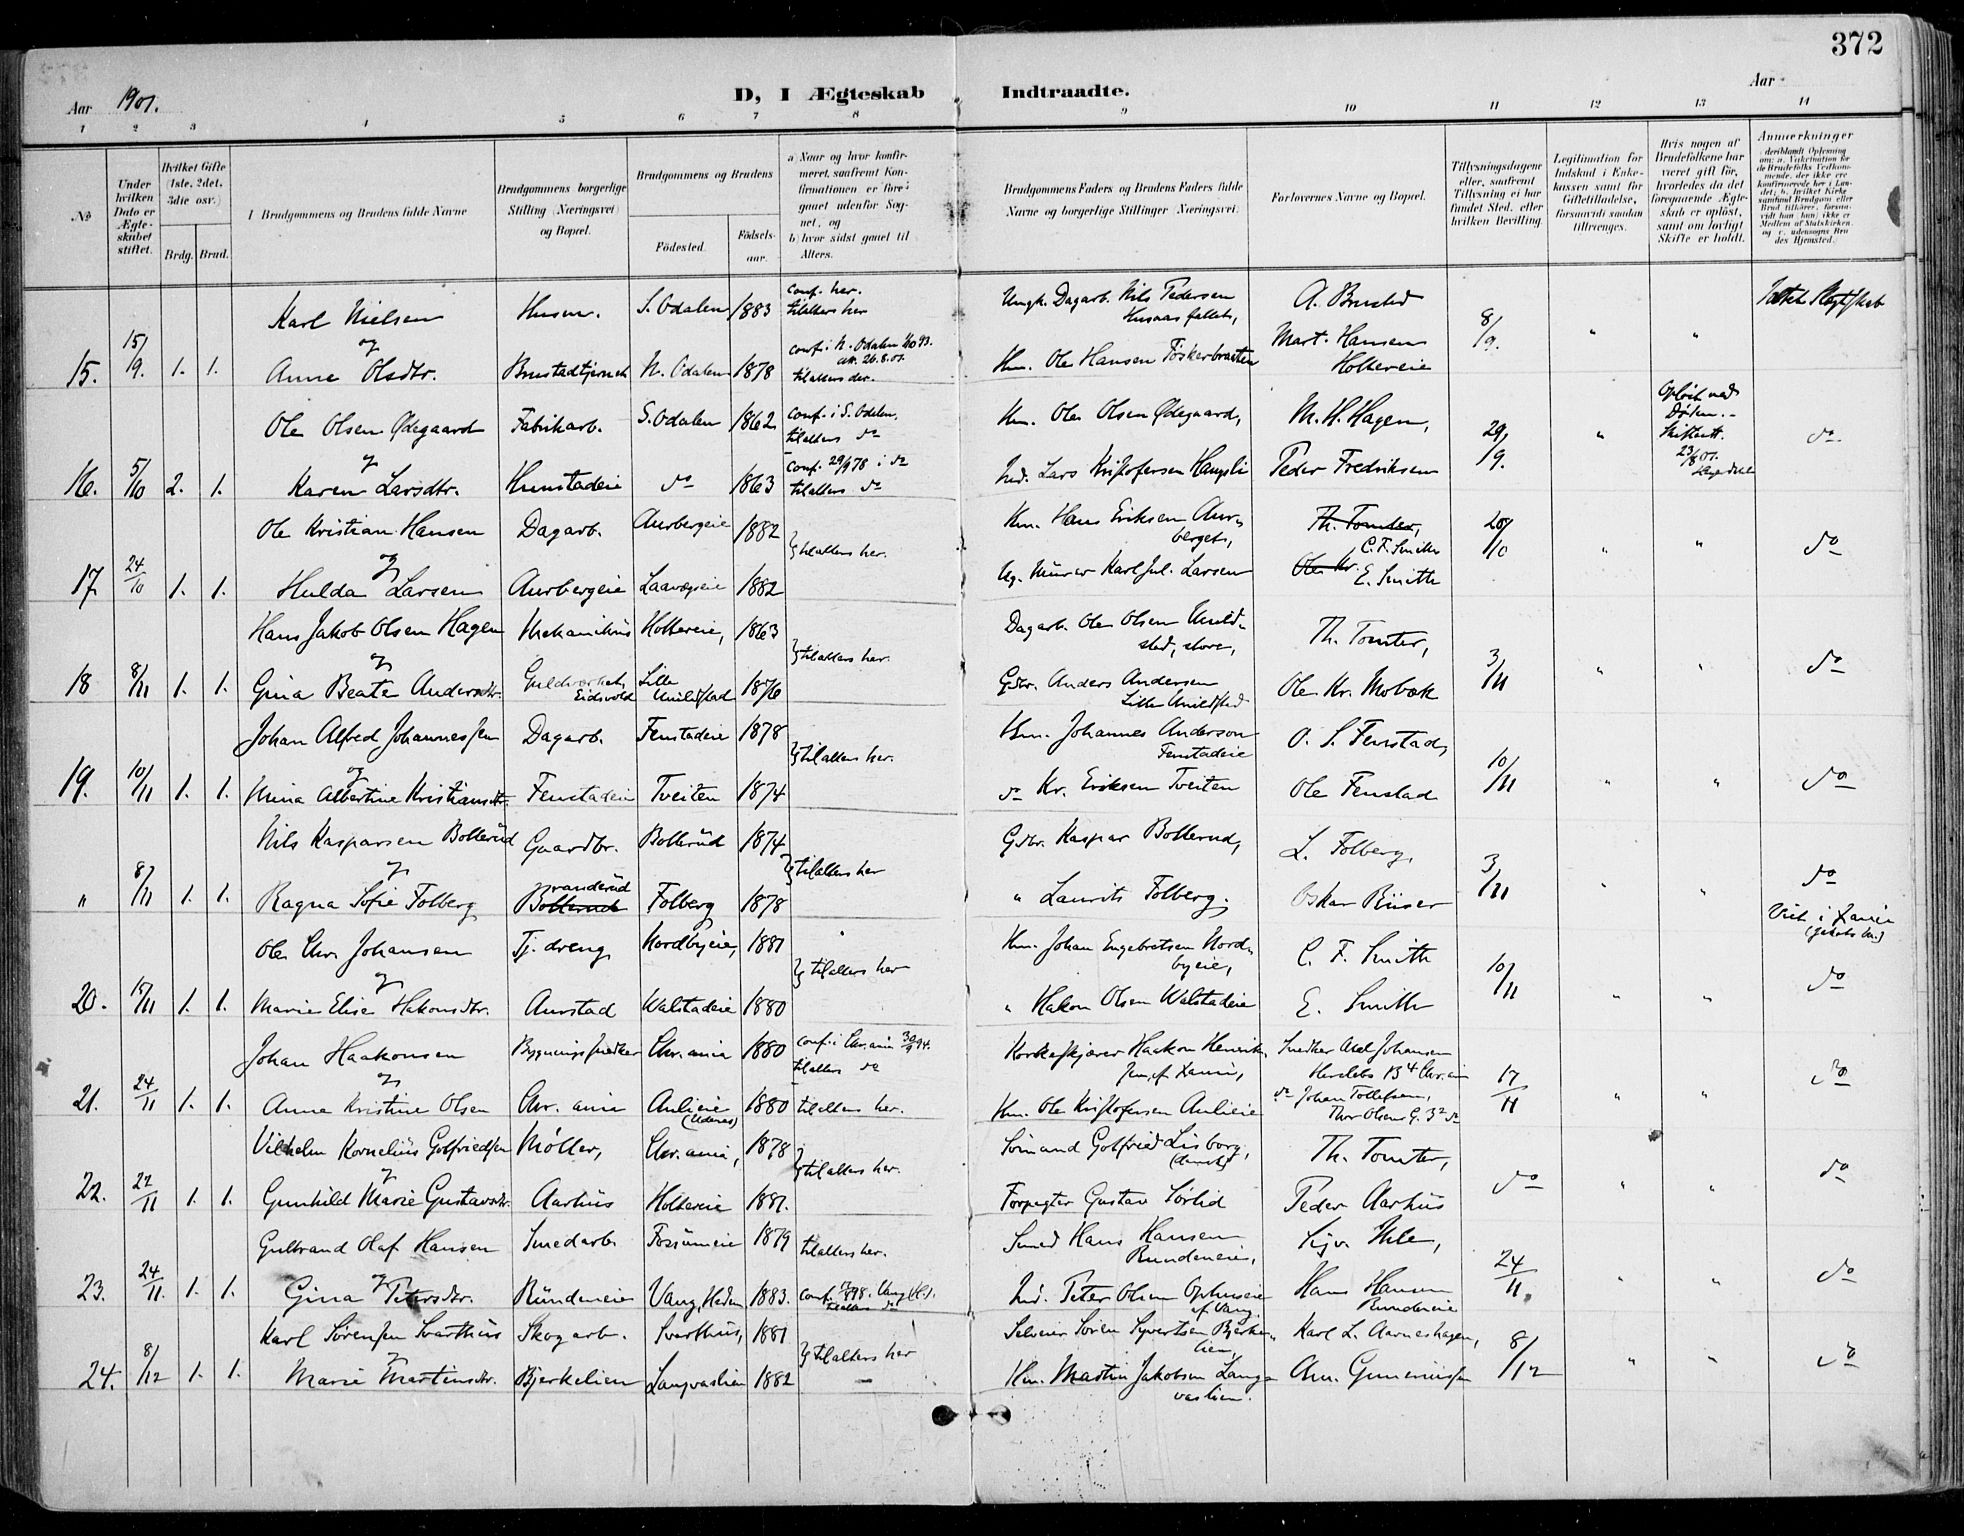 372
Aar 1901.
D, I Ægteskab Indtraadte.
Aar
1 2 3 4 5 6 7 8 9 10 11 12 13 14
No
Under hvilken Dato er Ægteskabet stiftet.
Hvilket Gifte (1ste, 2det, 3die osv.)
Brdg. Brud.
Brudgommens og Brudens fulde Navne
Brudgommens borgerlige Stilling (Næringsvei) og Bopæl.
Brudgommens og Brudens
Fødested. Fødselsaar.
a) Naar og hvor konfirmeret, saafremt Konfirmationen er foregaaet udenfor Sognet, og
b) hvor sidst gaaet til Alters.
Brudgommens Faders og Brudens Faders fulde Navne og borgerlige Stillinger (Næringsvei)
Forlovernes Navne og Bopæl.
Tillysningsdagene eller, saafremt Tillysning ei har fundet Sted, efter hvilken Bevilling.
Legitimation for Indskud i Enkekassen samt for Giftetilladelse, forsaavidt saadan tiltrænges.
Hvis nogen af Brudefolkene har været gift før, hvorledes da det foregaaende Ægteskab er opløst, samt om lovligt Skifte er holdt.
Anmærkninger
Karl Nielsen Husm. S. Odalen 1883 conf. her. tilalters her Ungk. Dagarb. Nils Pedersen A. Brustad
15. 15/9. 1. 1. og Mart. Hansen 8/9. " "
Anne Olsdtr. Brustadtjernet N. Odalen 1878 conf. i N. Odalen tilalters der. Hm. Ole Hansen Holtereie
Ole Olsen Ødegaard Fabrikarb. S. Odalen 1862 conf. i S. Odalen, tilalters do Hm. Ole Olsen Ødegaard, M. H. Hagen, 29/9. " Opløst ved Døden. do
16. 5/10 2. 1. og Karen Larsdtr. Hunstadeie do 1863 conf. 29/9 78 i do tilalters do Ind. Lars Kristofersen Peder Fredriksen 23/8 01.
Ole Kristian Hansen Dagarb. Aurbergeie 1882 } tilalters her. Hm. Hans Eriksen Aurberget, Th. Tomter, C. F. Smith 20/10 " " do
17 24/10 1. 1. og Hulda Larsen Aurbergeie 1882 Murer Karl Jul. Larsen Ole Kr. E. Smith
Hans Jakob Olsen Hagen Mekanikus Holtereie, 1863 } tilalters her. Dagarb. Ole Olsen Store, Th. Tomter, 3/11 " " do
18 8/11 1. 1. og Gina Beate Andersdtr. Guldverket, Eidsvold Lille 1876 Gbr. Anders Andersen Lille Ole Kr. Mobæk
Johan Alfred Johannessen Dagarb. Fenstadeie 1878 } tilalters her. Hm. Johannes Anderson Fenstadeie O. S. Fenstad, 10/11 " " do
19. 10/11 1. 1. og Mina Albertine Kristiansdtr. Fenstadeie Tveiten 1874 do Kr. Eriksen Tveiten Ole Fenstad
Nils Kasparsen Bollerud Gaardbr. Bollerud 1874 } tilalters her Gbr. Kaspar Bollerud, L. Folberg, 3/11 " " do
" 8/11 1. 1. og Ragna Sofie Folberg Branderud Bollerud Folberg 1878 " Laurits Folberg. Oskar Riiser Viet i Xania (Jakobs k.)
Ole Chr. Johansen Tj. dreng, Nordbyeie, 1881 } tilalters her Hm. Johan Engebretsen Nordbyeie, C. F. Smith 10/11 " " do
20. 15/11 1. 1. og Marie Elise Hakonsdtr. Aurstad Walstadeie 1880 " Hakon Olsen Walstadeie E. Smith
Johan Haakonsen Bygningssnedker Chr.ania 1880 conf. i Chr.ania 30/9 94. tilalters do Korkeskjærer Haakon Henriksen, af Xania, Snedker Axel Johansen Herslebs 13 4 Chr.ania 17/11 " " do
21. 24/11 1. 1. og Anna Kristine Olsen Chr.ania Aulieie (Udenes) 1880 tilalters her. Hm. Ole Kristofersen Aulieie do Johan Tollefsen, Thor Olsens G. 3 2 do
Vilhelm Kornelius Gotfriedsen Møller, Chr.ania, 1878 } tilalters her. Sømand Gotfried Lisborg, (dansk) Th. Tomter, do " " do
22. 22/11 1. 1. og Gunhild Marie Gustavsdtr. Aarhus Holtereie 1881. Forpagter Gustav Sørlid Peder Aarhus
Gulbrand Olaf Hansen Smedarb. Fossumeie 1879 tilalters her. Smed Hans Hansen Rundeneie, Sigv. Ihle, 24/11. " " do
23. 24/11. 1. 1. og Gina Petersdtr. Rundeneie Vang, Hedm. 1883. conf. Vang tilalters do Ind. Peter Olsen af Vang Hans Hansen Rundeneie
Karl Sørensen Svarthus Skogarb. Svarthus, 1881 } tilalters her Selveier Søren Syvertsen Bjerkelien, Karl L. Aarneshagen, 8/12 " " do
24. 8/12 1. 1. og Marie Martinsdtr. Bjerkelien Langvaslien 1882 Hm. Martin Jakobsen Langvaslien.